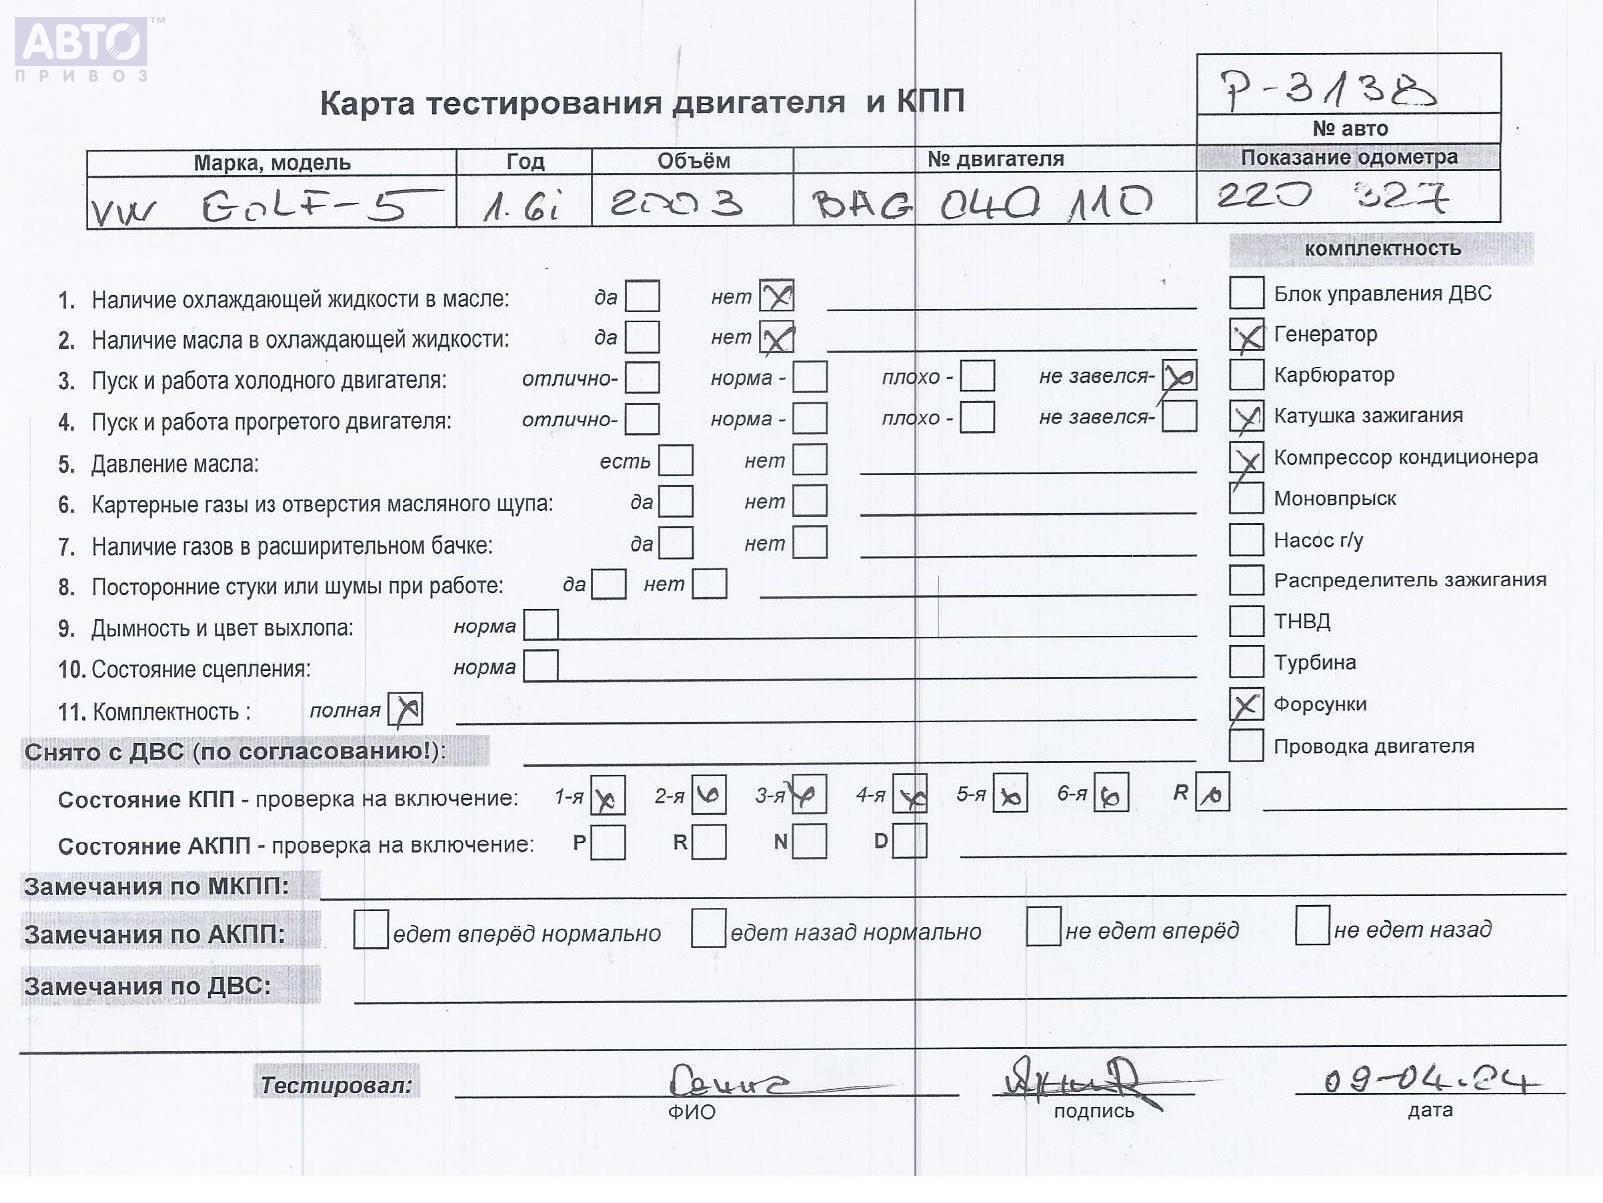 АВТО™
ПРИВОЗ
Карта тестирования двигателя и КПП
P-3138
№ авто
Марка, модель Год Объём № двигателя Показание одометра
VW GOLF-5 1.6i 2003 BAG 040 110 220 327
комплектность
1. Наличие охлаждающей жидкости в масле: да нет Блок управления ДВС
2. Наличие масла в охлаждающей жидкости: да нет Генератор
3. Пуск и работа холодного двигателя: отлично- норма - плохо - не завелся- Карбюратор
4. Пуск и работа прогретого двигателя: отлично- норма - плохо - не завелся- Катушка зажигания
5. Давление масла: есть нет Компрессор кондиционера
6. Картерные газы из отверстия масляного щупа: да нет Моновпрыск
7. Наличие газов в расширительном бачке: да нет Насос г/у
8. Посторонние стуки или шумы при работе: да нет Распределитель зажигания
9. Дымность и цвет выхлопа: норма ТНВД
10. Состояние сцепления: норма Турбина
11. Комплектность : полная Форсунки
Снято с ДВС (по согласованию!): Проводка двигателя
Состояние КПП - проверка на включение: 1-я 2-я 3-я 4-я 5-я 6-я R
Состояние АКПП - проверка на включение: P R N D
Замечания по МКПП:
Замечания по АКПП: едет вперёд нормально едет назад нормально не едет вперёд не едет назад
Замечания по ДВС:
Тестировал: 09-04.24
ФИО подпись дата